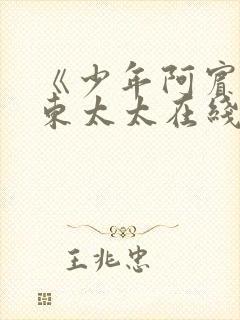 《少年阿宾
东太太在线
王兆忠